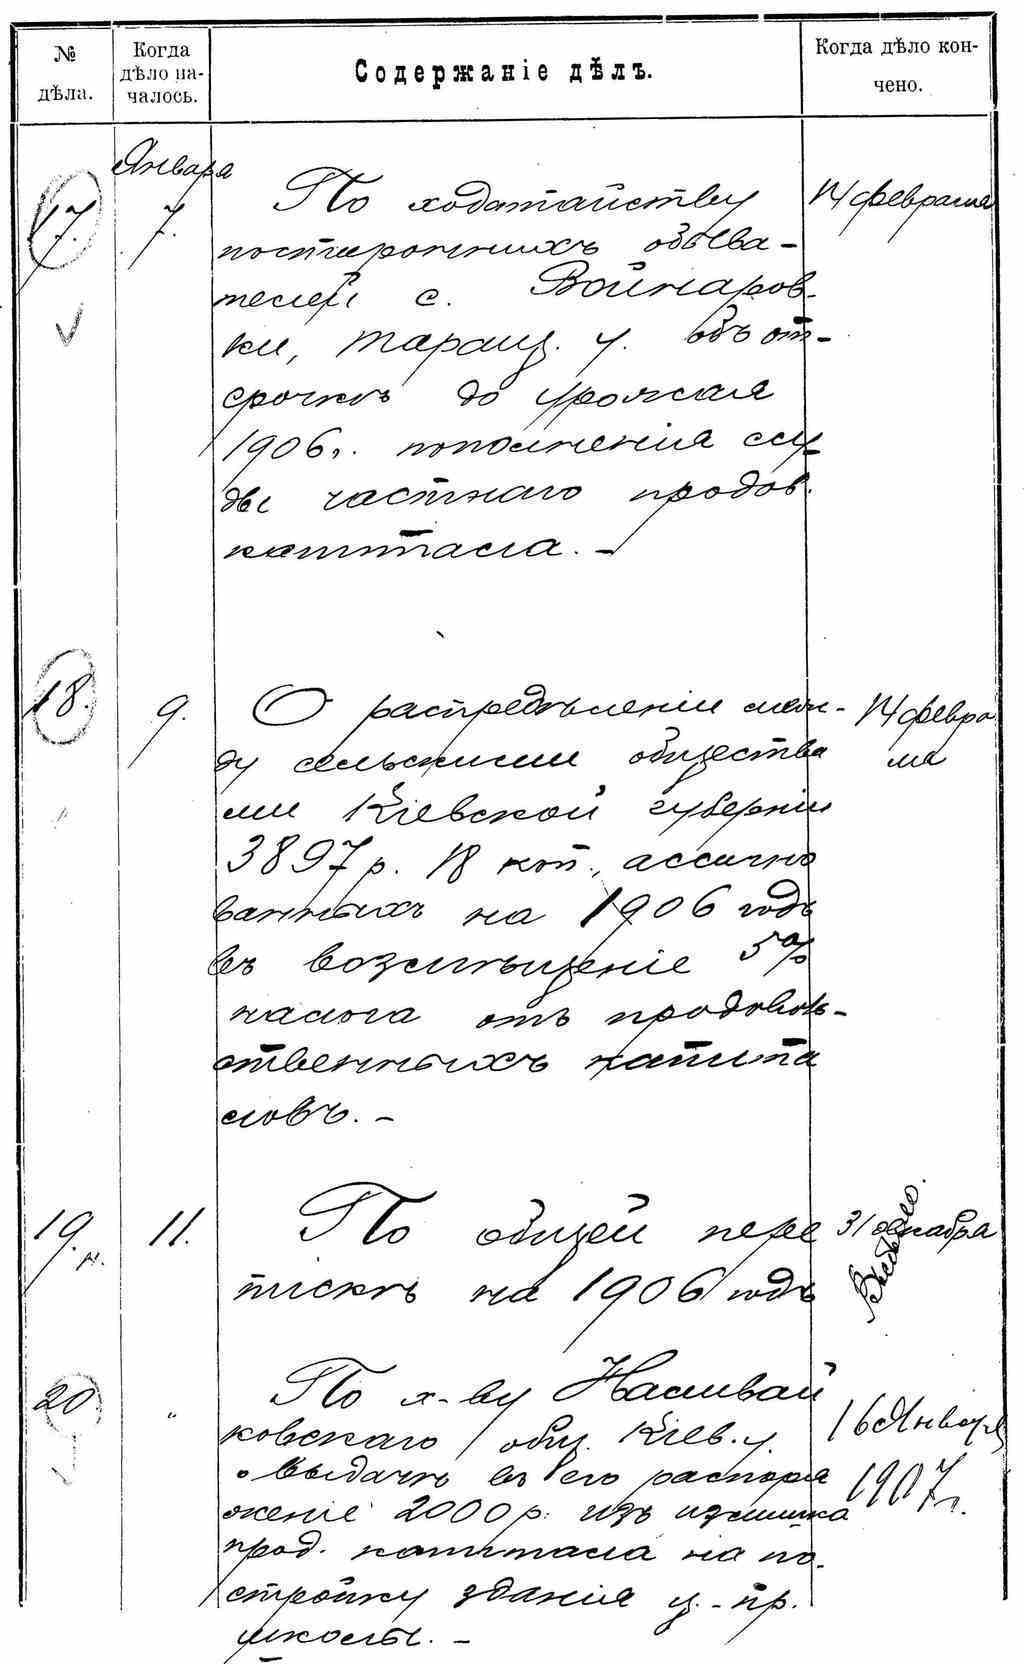 № дѣла.
Когда дѣло началось.
Содержаніе дѣлъ.
Когда дѣло кончено.
Января
17. 7. По ходатайству 14 февраля
постороннихъ обыва-
телей с. Войнаров-
ки, Таращ. у. объ от-
срочкѣ до урожая
1906 г. пополненія ссу-
ды частнаго продов.
капитала. —
18. 9. О распредѣленіи меж- 14 февра
ду сельскими общества ля
ми Кіевской губерніи
3897 р. 18 коп., ассигно
ванныхъ на 1906 годъ
въ возмѣщеніе 5%
налога отъ продоволь-
ственныхъ капита
ловъ. —
19. 11. По общей пере 31 декабря
пискѣ на 1906 годъ
20 " По х-ву Наливай
ковскаго общ. Кіев. у. 16 Января
о выдачѣ въ его распоря 1907 г.
женіе 2000 р. изъ излишка
прод. капитала на по-
стройку зданія ц.-пр.
школы. —